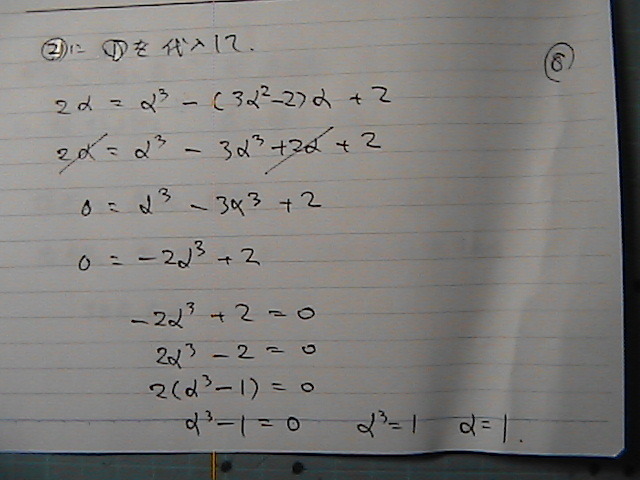 ②に ①を 代入して.
⑧
2α = α³ - (3α²-2)α + 2
2α = α³ - 3α³ + 2α + 2
0 = α³ - 3α³ + 2
0 = -2α³ + 2
-2α³ + 2 = 0
2α³ - 2 = 0
2(α³-1) = 0
α³-1 = 0 α³=1 α=1.